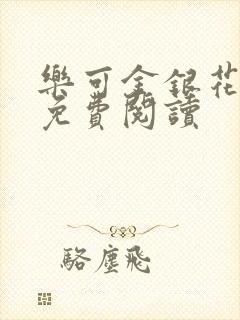 樂可金銀花
免費閱讀
駱塵飛